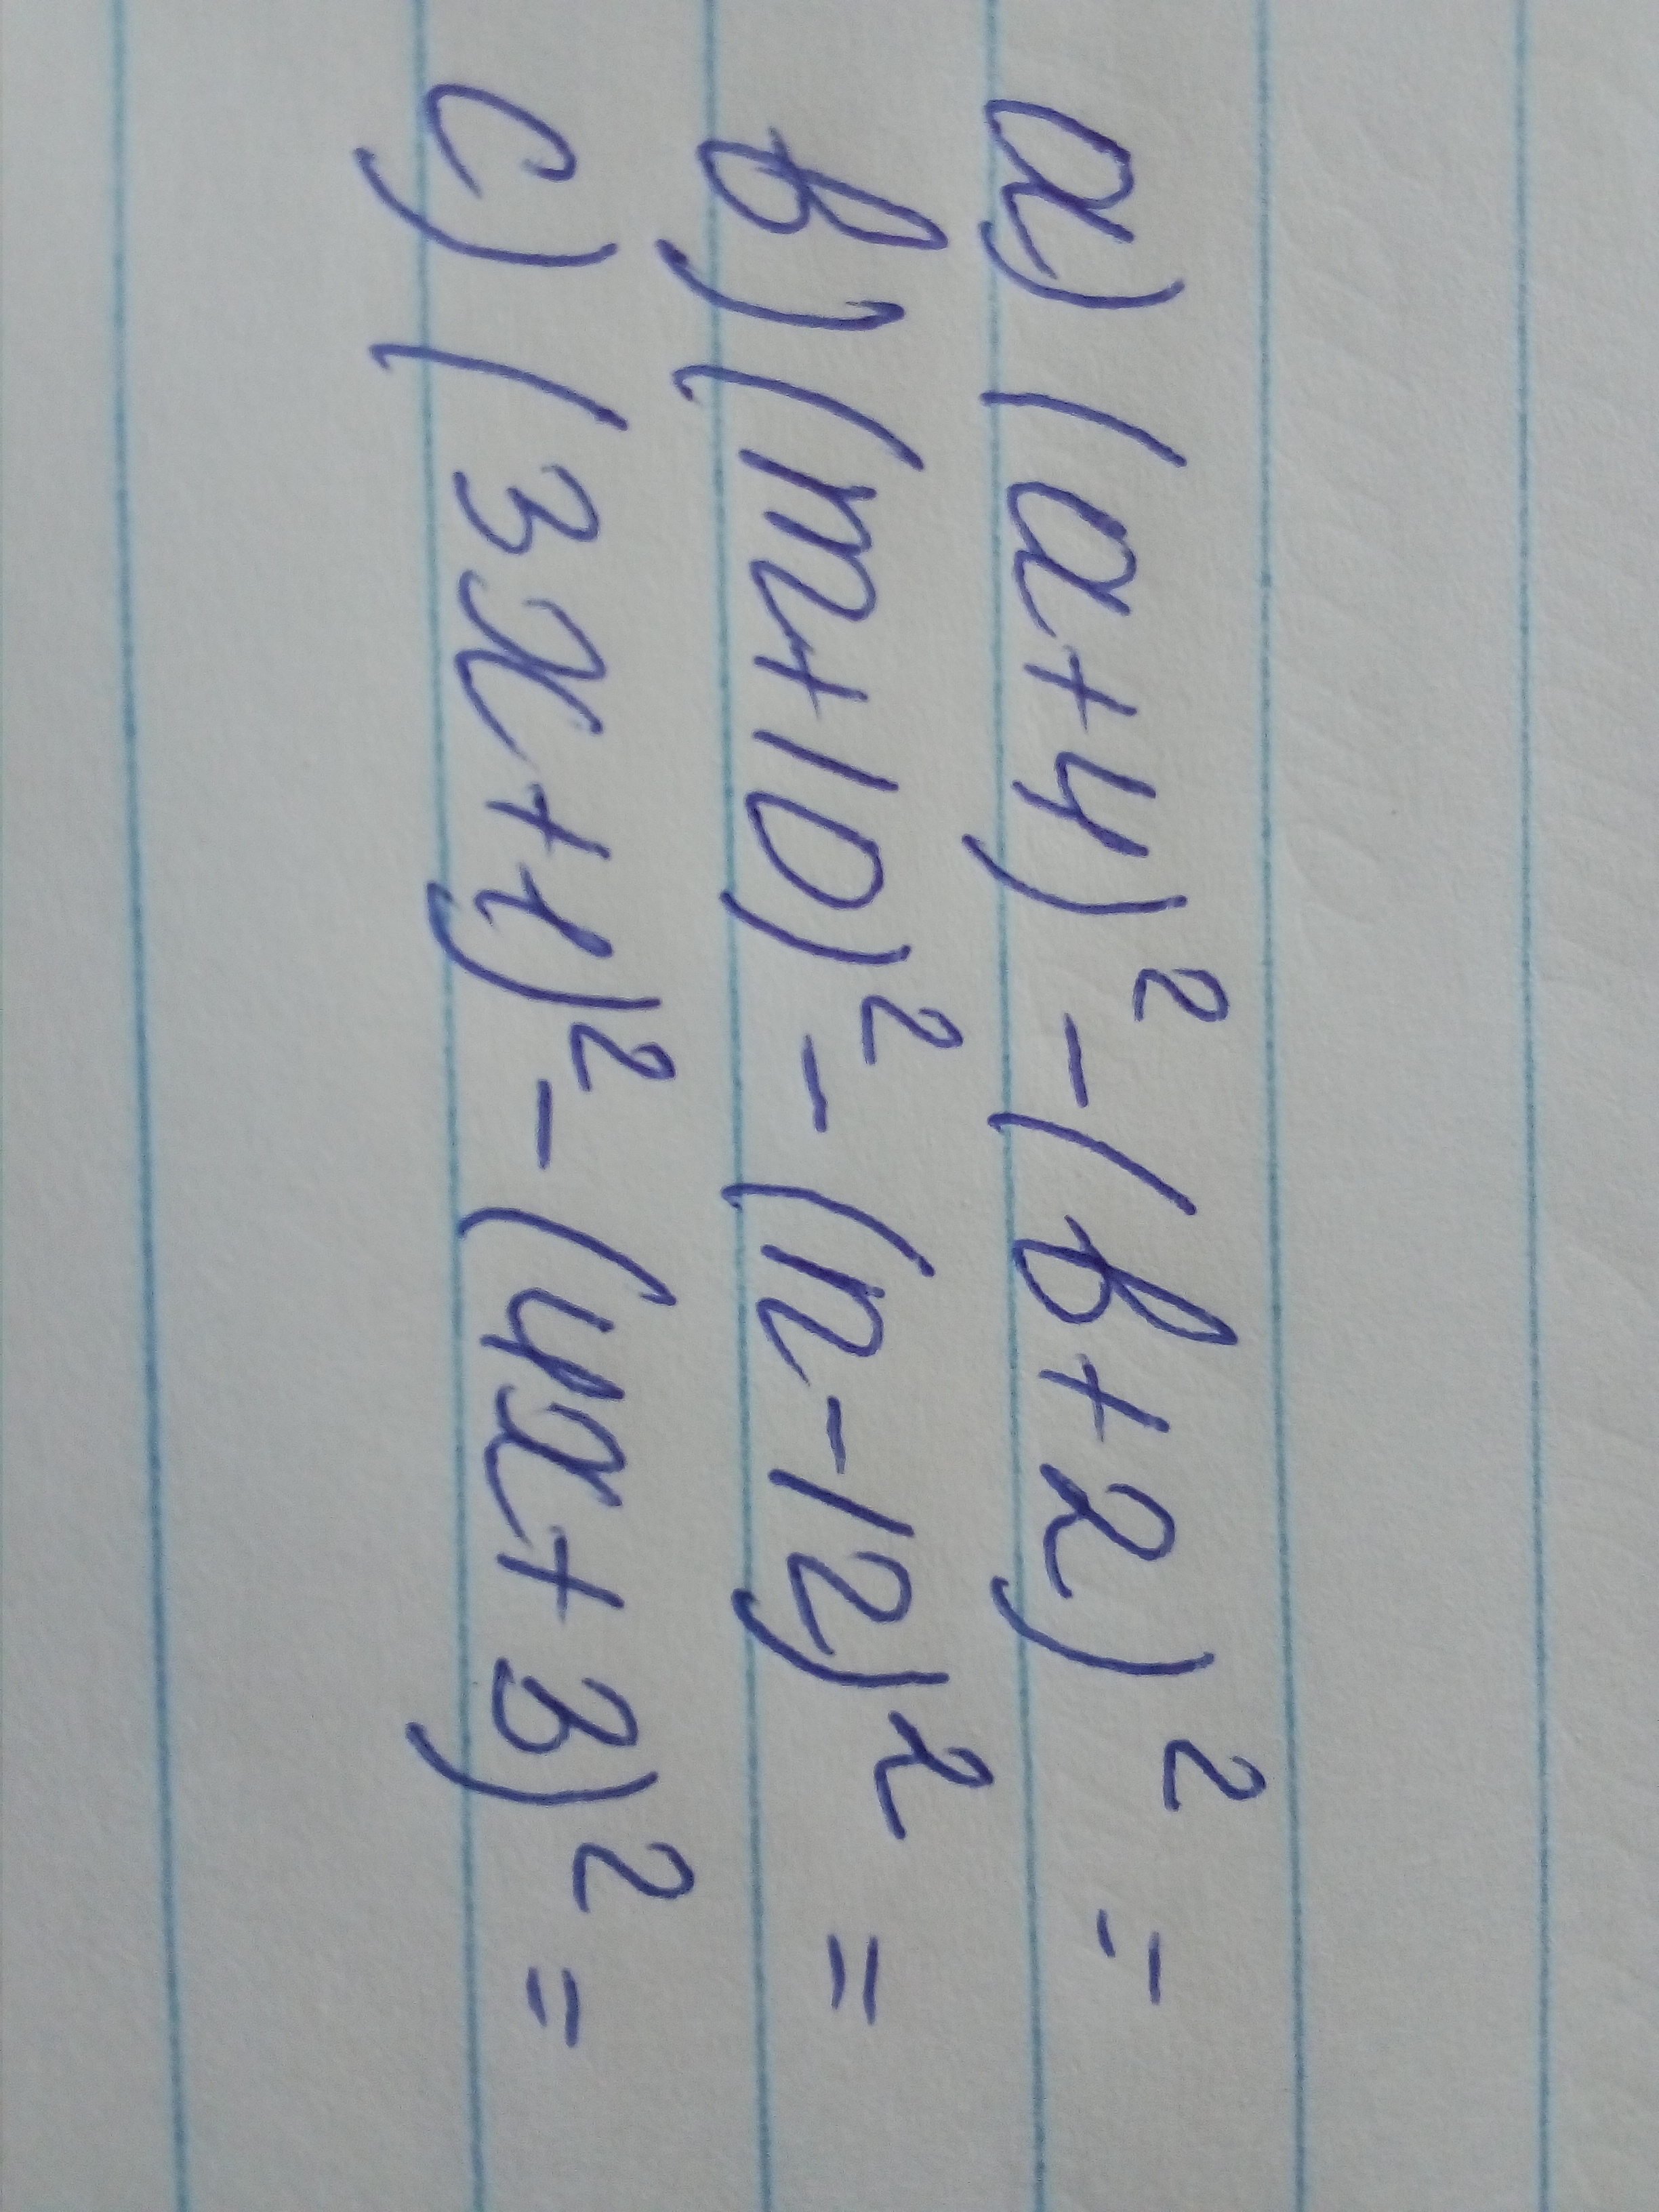 a) (a+4)² - (b+2)² =
b) (m+10)² - (n-12)² =
c) (3x+4)² - (4x+3)² =